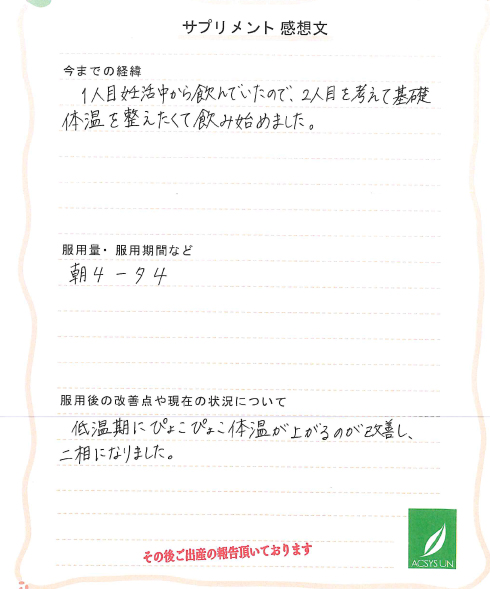 サプリメント 感想文
今までの経緯
1人目妊活中から飲んでいたので、2人目を考えて基礎
体温を整えたくて飲み始めました。
服用量・服用期間など
朝4 ー 夕4
服用後の改善点や現在の状況について
低温期にぴょこぴょこ体温が上がるのが改善し、
二相になりました。
その後ご出産の報告頂いております
ACSYS LIN